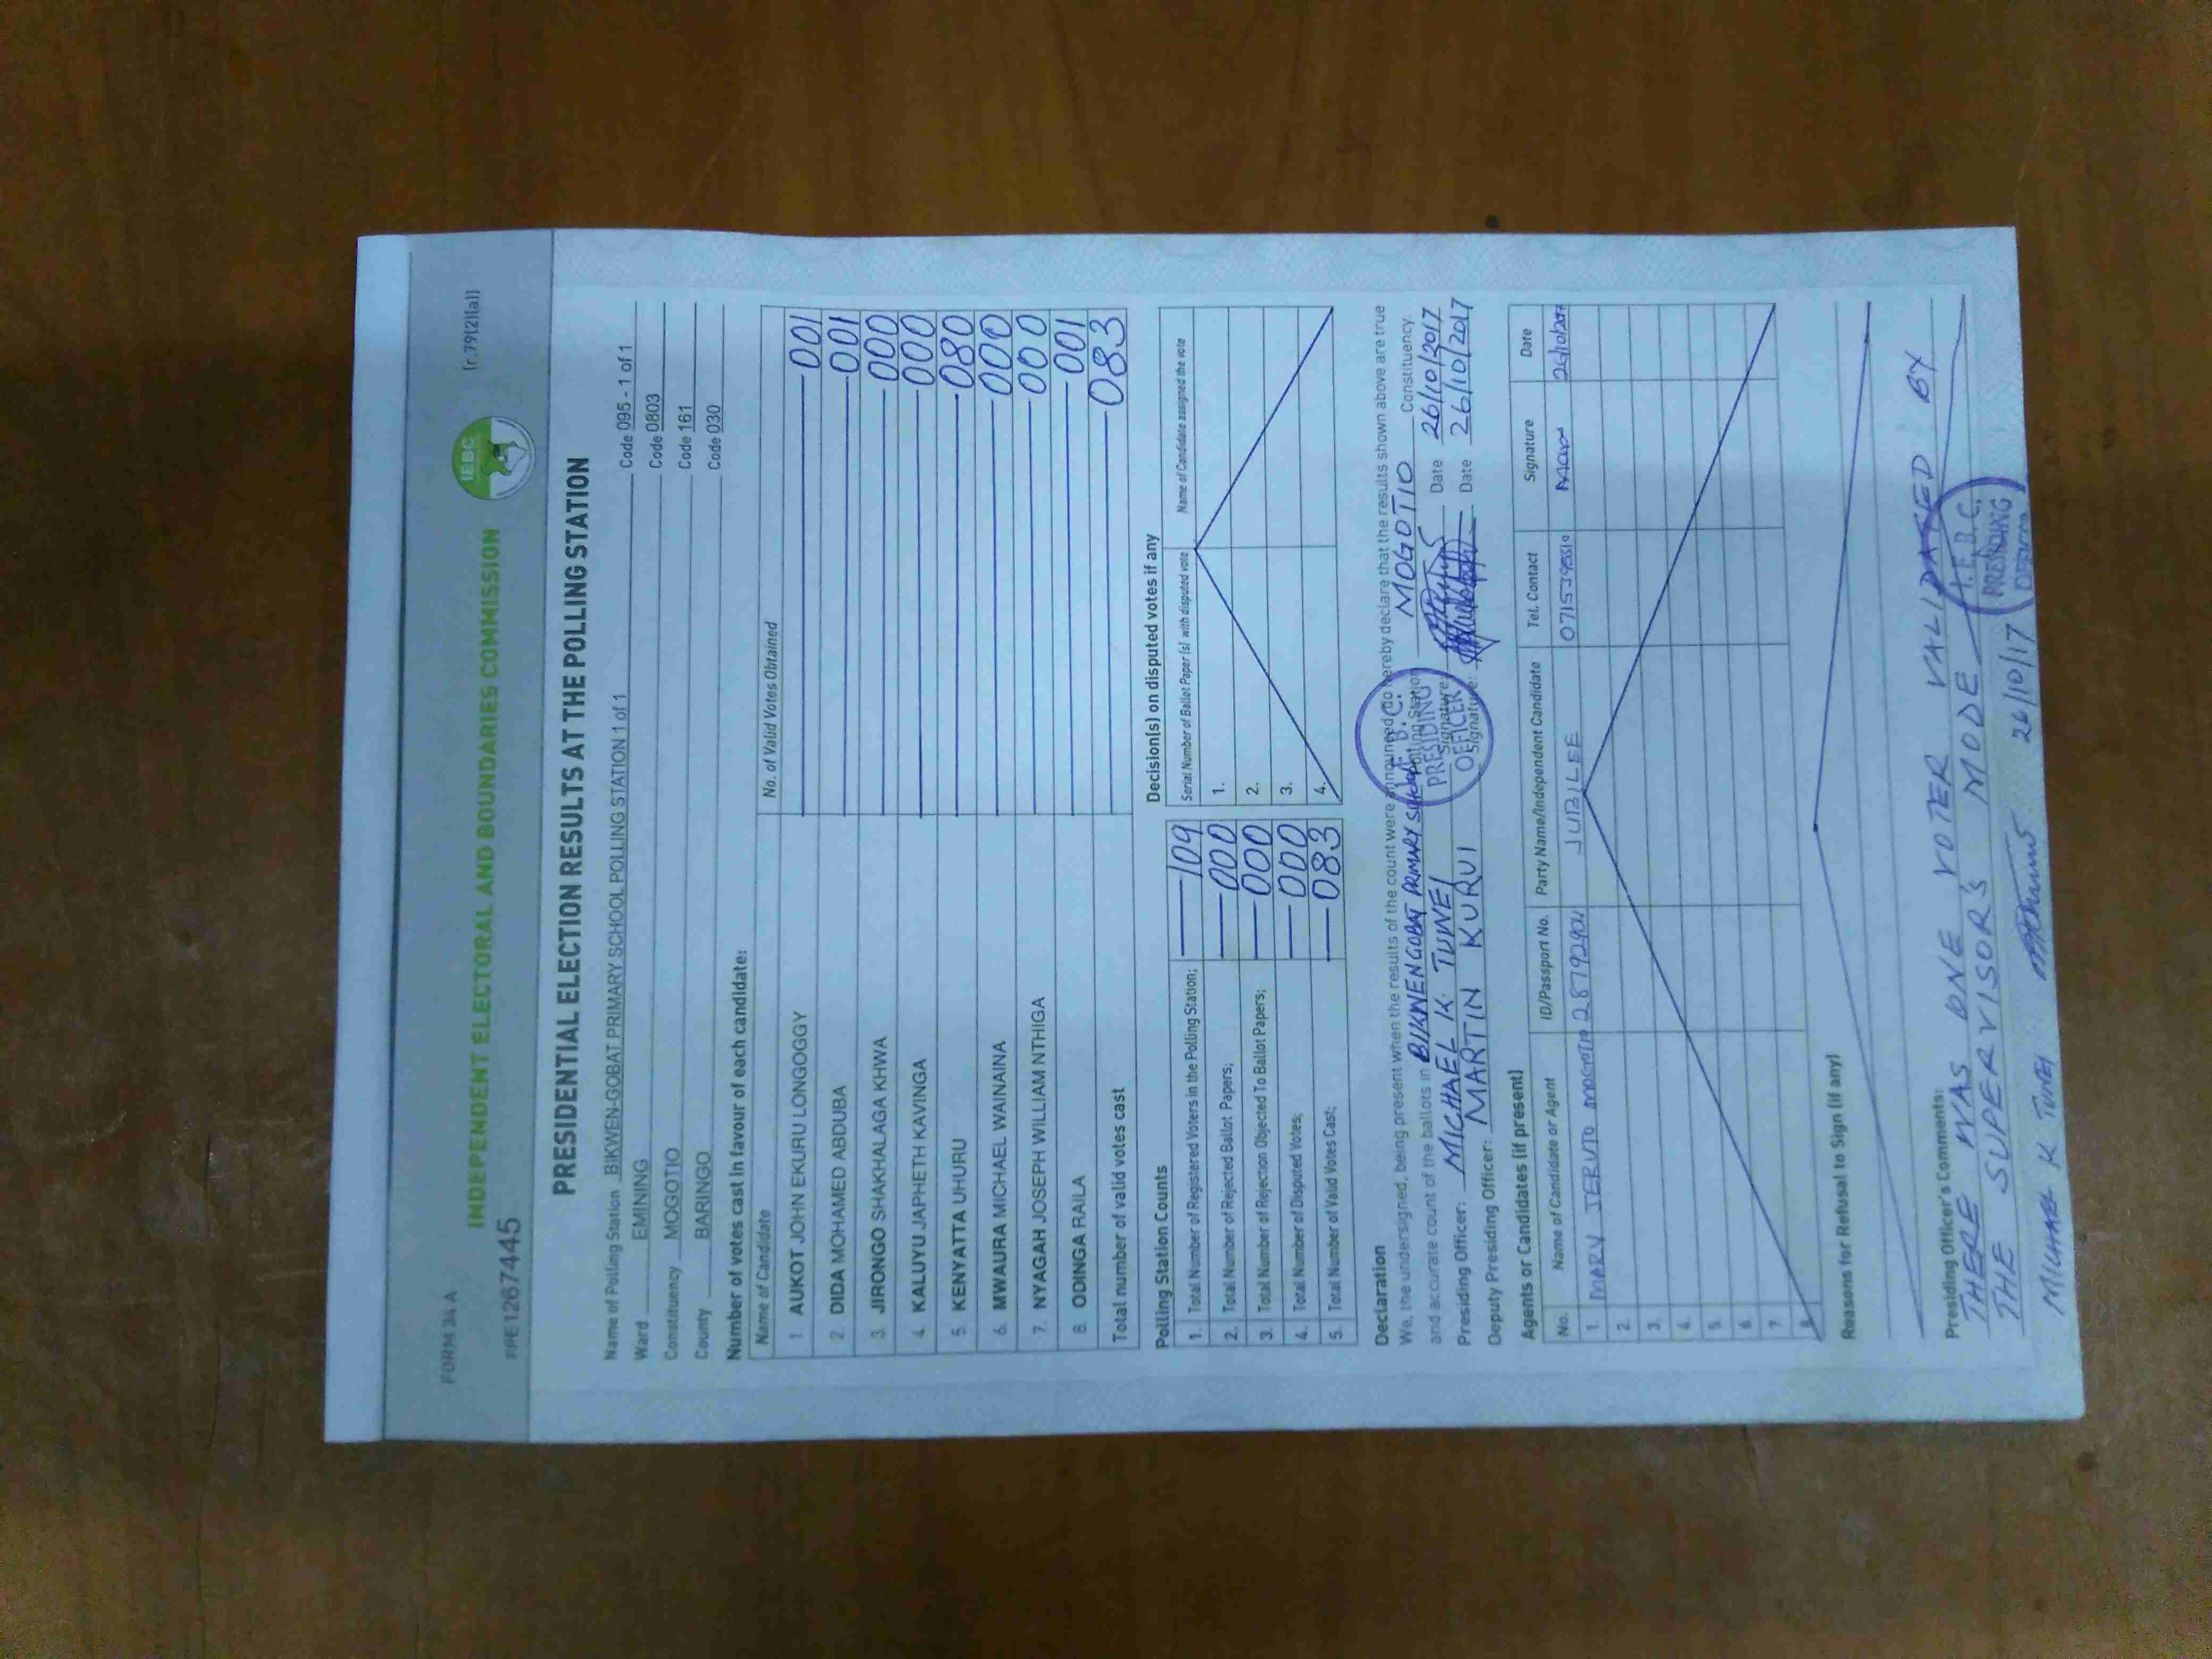 FORM 34 A
(r.79(2)(a))
PRE1267445
INDEPENDENT ELECTORAL AND BOUNDARIES COMMISSION
IEBC
PRESIDENTIAL ELECTION RESULTS AT THE POLLING STATION
Name of Polling Station BIKWEN-GOBAT PRIMARY SCHOOL POLLING STATION 1 of 1 Code 095 - 1 of 1
Ward EMINING Code 0803
Constituency MOGOTIO Code 161
County BARINGO Code 030
Number of votes cast in favour of each candidate:
Name of Candidate No. of Valid Votes Obtained
1 AUKOT JOHN EKURU LONGOGGY 001
2. DIDA MOHAMED ABDUBA 001
3. JIRONGO SHAKHALAGA KHWA 000
4. KALUYU JAPHETH KAVINGA 000
5. KENYATTA UHURU 080
6. MWAURA MICHAEL WAINAINA 000
7. NYAGAH JOSEPH WILLIAM NTHIGA 000
8 ODINGA RAILA 001
Total number of valid votes cast 083
Polling Station Counts
1. Total Number of Registered Voters in the Polling Station; 109
2. Total Number of Rejected Ballot Papers; 000
3. Total Number of Rejection Objected To Ballot Papers; 000
4. Total Number of Disputed Votes; 000
5. Total Number of Valid Votes Cast; 083
Decision(s) on disputed votes if any
Serial Number of Ballot Paper (s) with disputed vote Name of Candidate assigned the vote
1.
2.
3.
4.
Declaration
We, the undersigned, being present when the results of the count were announced, do hereby declare that the results shown above are true
and accurate count of the ballots in BIKWENGOBAT PRIMARY SCHOOL Polling Station MOGOTIO Constituency.
Presiding Officer: MICHAEL K. TUNEI Signature: Date 26/10/2017
Deputy Presiding Officer: MARTIN KURUI Signature: Date 26/10/2017
I.E.B.C.
PRESIDING
OFFICER
Agents or Candidates (if present)
No. Name of Candidate or Agent ID/Passport No. Party Name/Independent Candidate Tel. Contact Signature Date
1. MARY JERUTO 28792904 JUBILEE 26/10/2017
2.
3.
4.
5.
6.
7.
8.
Reasons for Refusal to Sign (if any)
Presiding Officer's Comments:
THERE WAS ONE VOTER VALIDATED BY
THE SUPERVISOR'S MODE
MICHAEL K TUNEI 26/10/17
I.E.B.C.
PRESIDING
OFFICER